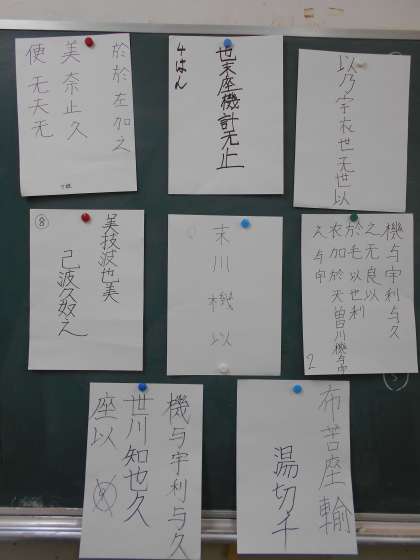 於於左加之
美奈止久
使无夫无
世末座機計无止
4はん
以乃宇衣世无世以
⑧
美技波也美
己波久奴之
末川機以
機与宇利与久
之无良以
於毛以也利
衣加於天曽川機与宇
久与宇
2
機与宇利与久
世川知也久
座以
布苦座輸
湯切千